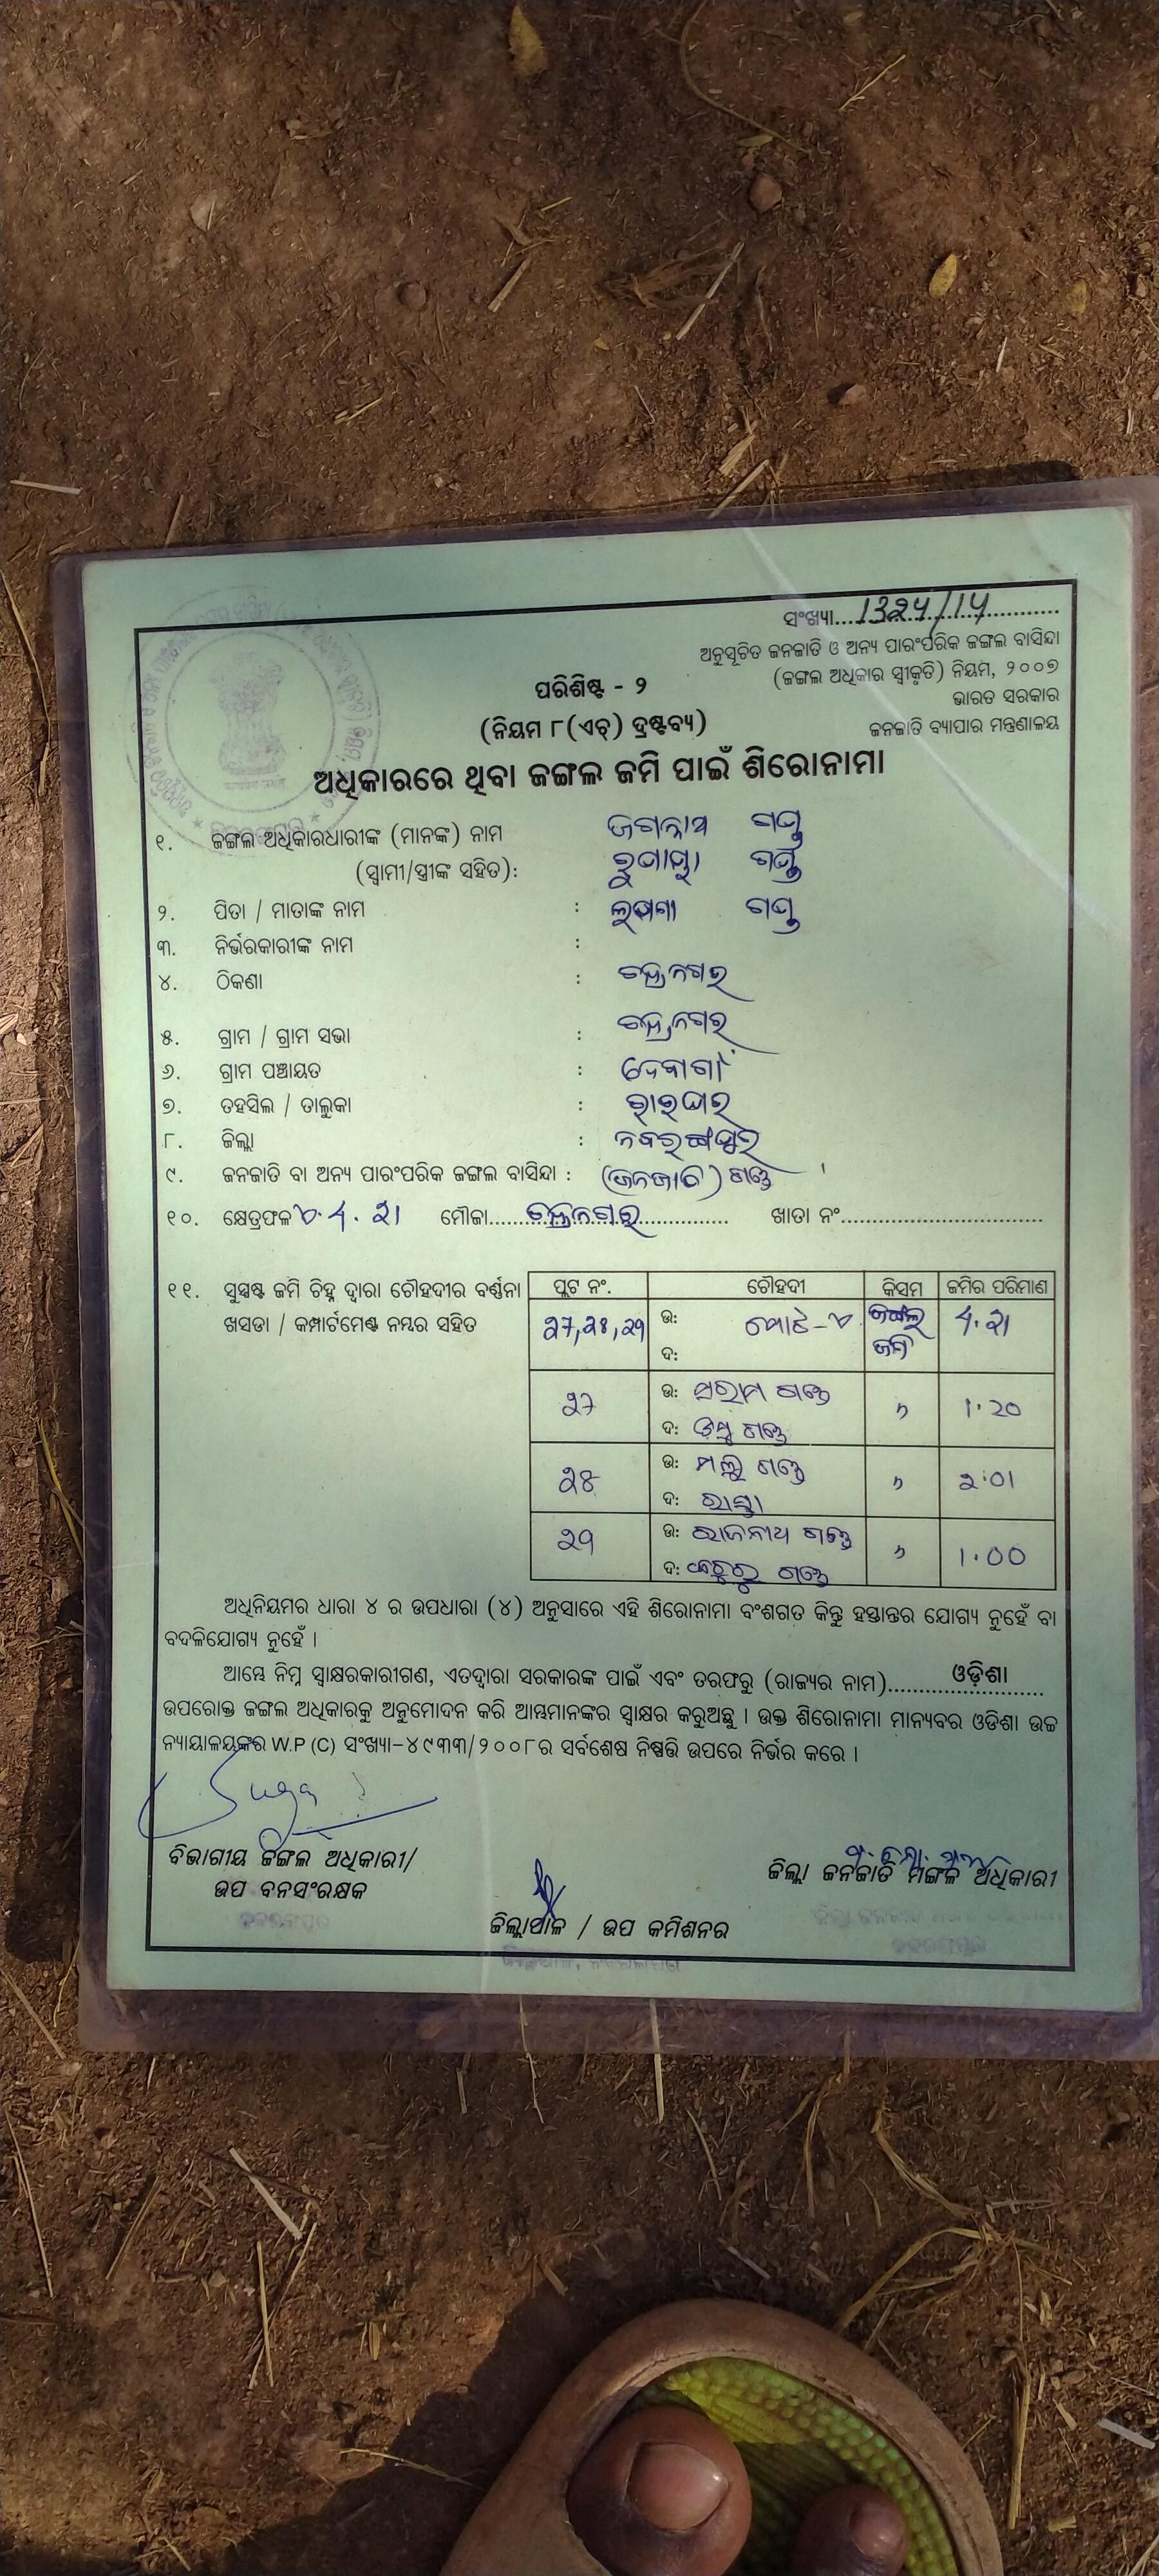 ସଂଖ୍ୟା....1324/14....
ଅନୁସୂଚିତ ଜନଜାତି ଓ ଅନ୍ୟ ପାରଂପରିକ ଜଙ୍ଗଲ ବାସିନ୍ଦା
(ଜଙ୍ଗଲ ଅଧିକାର ସ୍ୱୀକୃତି) ନିୟମ, ୨୦୦୭
ଭାରତ ସରକାର
ଜନଜାତି ବ୍ୟାପାର ମନ୍ତ୍ରଣାଳୟ
ପରିଶିଷ୍ଟ - ୨
(ନିୟମ ୮(ଏଚ୍) ଦ୍ରଷ୍ଟବ୍ୟ)
ଅଧିକାରରେ ଥିବା ଜଙ୍ଗଲ ଜମି ପାଇଁ ଶିରୋନାମା
୧. ଜଙ୍ଗଲ ଅଧିକାରଧାରୀଙ୍କ (ମାନଙ୍କ) ନାମ ଜଗନ୍ନାଥ ଗଣ୍ଡ
(ସ୍ୱାମୀ/ସ୍ତ୍ରୀଙ୍କ ସହିତ): ଗଣ୍ଡ
୨. ପିତା / ମାତାଙ୍କ ନାମ : ଗଣ୍ଡ
୩. ନିର୍ଭରକାରୀଙ୍କ ନାମ :
୪. ଠିକଣା :
୫. ଗ୍ରାମ / ଗ୍ରାମ ସଭା :
୬. ଗ୍ରାମ ପଞ୍ଚାୟତ :
୭. ତହସିଲ / ତାଲୁକା : ରାଇଘର
୮. ଜିଲ୍ଲା : ନବରଙ୍ଗପୁର
୯. ଜନଜାତି ବା ଅନ୍ୟ ପାରଂପରିକ ଜଙ୍ଗଲ ବାସିନ୍ଦା : (ଜନଜାତି) ଗଣ୍ଡ
୧୦. କ୍ଷେତ୍ରଫଳ 4.21 ମୌଜା.... ଖାତା ନଂ....
୧୧. ସୁସ୍ପଷ୍ଟ ଜମି ଚିହ୍ନ ଦ୍ୱାରା ଚୌହଦୀର ବର୍ଣ୍ଣନା
ଖସଡା / କମ୍ପାର୍ଟମେଣ୍ଟ ନମ୍ବର ସହିତ
ପ୍ଲଟ ନଂ. ଚୌହଦୀ କିସମ ଜମିର ପରିମାଣ
27, 28, 29 ଉ: ମୋଟ ଜଙ୍ଗଲ 4.21
ଦ: ଜମି
27 ଉ: ଗଣ୍ଡ " 1.20
ଦ: ଗଣ୍ଡ
28 ଉ: ଗଣ୍ଡ " 2.01
ଦ: ରାସ୍ତା
29 ଉ: ଗଣ୍ଡ " 1.00
ଦ: ଗଣ୍ଡ
ଅଧିନିୟମର ଧାରା ୪ ର ଉପଧାରା (୪) ଅନୁସାରେ ଏହି ଶିରୋନାମା ବଂଶଗତ କିନ୍ତୁ ହସ୍ତାନ୍ତର ଯୋଗ୍ୟ ନୁହେଁ ବା
ବଦଳିଯୋଗ୍ୟ ନୁହେଁ ।
ଆମ୍ଭେ ନିମ୍ନ ସ୍ୱାକ୍ଷରକାରୀଗଣ, ଏତଦ୍ୱାରା ସରକାରଙ୍କ ପାଇଁ ଏବଂ ତରଫରୁ (ରାଜ୍ୟର ନାମ)....ଓଡ଼ିଶା....
ଉପରୋକ୍ତ ଜଙ୍ଗଲ ଅଧିକାରକୁ ଅନୁମୋଦନ କରି ଆମ୍ଭମାନଙ୍କର ସ୍ୱାକ୍ଷର କରୁଅଛୁ । ଉକ୍ତ ଶିରୋନାମା ମାନ୍ୟବର ଓଡିଶା ଉଚ୍ଚ
ନ୍ୟାୟାଳୟଙ୍କର W.P (C) ସଂଖ୍ୟା-୪୯୩୩/୨୦୦୮ର ସର୍ବଶେଷ ନିଷ୍ପତ୍ତି ଉପରେ ନିର୍ଭର କରେ ।
ବିଭାଗୀୟ ଜଙ୍ଗଲ ଅଧିକାରୀ/
ଉପ ବନସଂରକ୍ଷକ
ଜିଲ୍ଲା ଜନଜାତି ମଙ୍ଗଳ ଅଧିକାରୀ
ଜିଲ୍ଲାପାଳ / ଉପ କମିଶନର